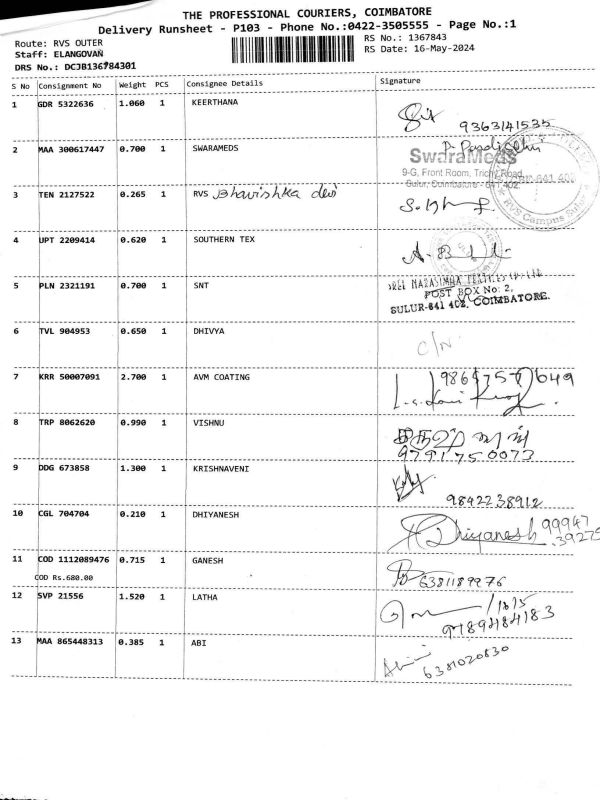 THE PROFESSIONAL COURIERS, COIMBATORE
Delivery Runsheet - P103 - Phone No.:0422-3505555 - Page No.:1
Route: RVS OUTER RS No.: 1367843
Staff: ELANGOVAN RS Date: 16-May-2024
DRS No.: DCJB136784301
S No Consignment No Weight PCS Consignee Details Signature
1 GDR 5322636 1.060 1 KEERTHANA
9363141535
2 MAA 300617447 0.700 1 SWARAMEDS
SwaraMeds
9-G, Front Room, Trichy Road,
Sulur, Coimbatore - 641 402.
RVS Campus Sulur
3 TEN 2127522 0.265 1 RVS Bhavishka devi
4 UPT 2209414 0.620 1 SOUTHERN TEX
5 PLN 2321191 0.700 1 SNT
POST BOX No: 2,
SULUR-641 402. COIMBATORE.
6 TVL 904953 0.650 1 DHIVYA C/N
7 KRR 50007091 2.700 1 AVM COATING
8 TRP 8062620 0.990 1 VISHNU
9791750073
9 DDG 673858 1.300 1 KRISHNAVENI
9842238912
10 CGL 704704 0.210 1 DHIYANESH Dhiyanesh 99947
39275
11 COD 1112089476 0.715 1 GANESH
6381189976
COD Rs.680.00
12 SVP 21556 1.520 1 LATHA
9789484183
13 MAA 865448313 0.385 1 ABI
6381020830